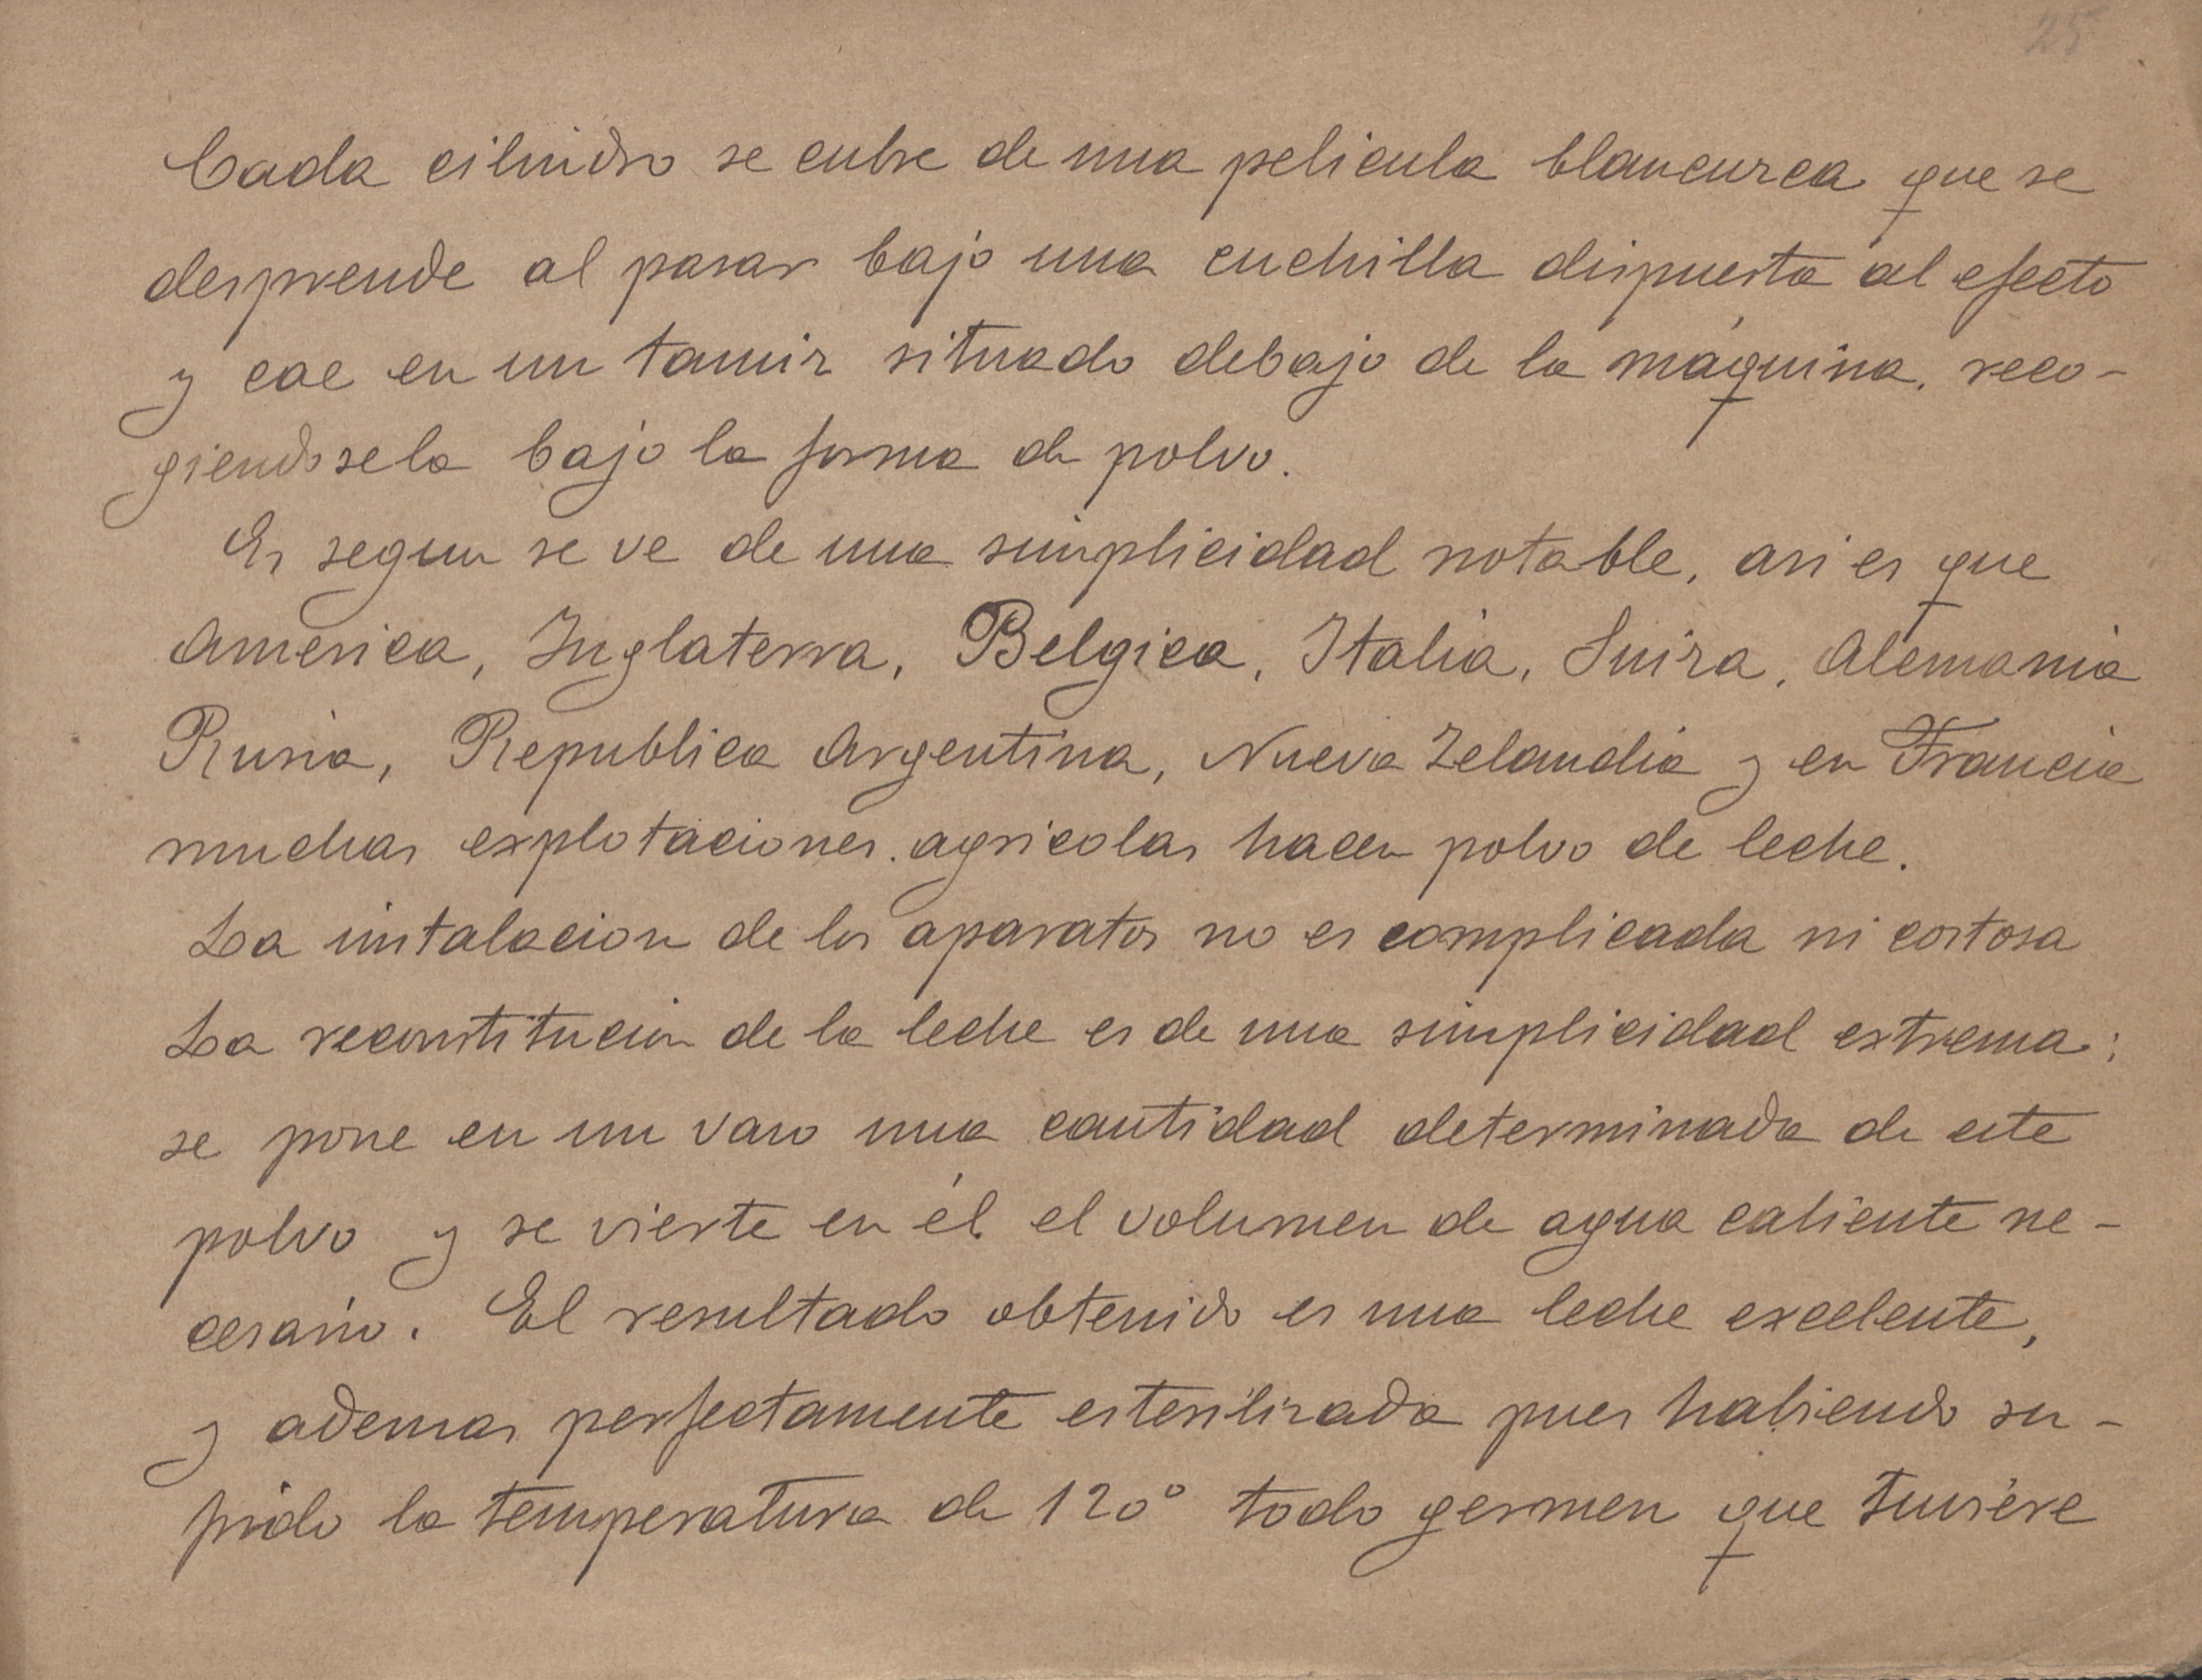 25
Cada cilindro se cubre de una pelicula blancurea que se
desprende al pasar bajo una cuchilla dispuesta al efecto
y cae en un tamiz situado debajo de la máquina, reco-
giendosela bajo la forma de polvo.
Es segun se ve de una simplicidad notable, asi es que
America, Inglaterra, Belgica, Italia, Suiza, Alemania
Rusia, Republica Argentina, Nueva Zelandia y en Francia
muchas explotaciones agricolas hacen polvo de leche.
La instalacion de los aparatos no es complicada ni costosa
La reconstitucion de la leche es de una simplicidad extrema;
se pone en un vaso una cantidad determinada de este
polvo y se vierte en él el volumen de agua caliente ne-
cesario. El resultado obtenido es una leche excelente,
y ademas perfectamente esterilizada pues habiendo su-
frido la temperatura de 120° todo germen que tuviere